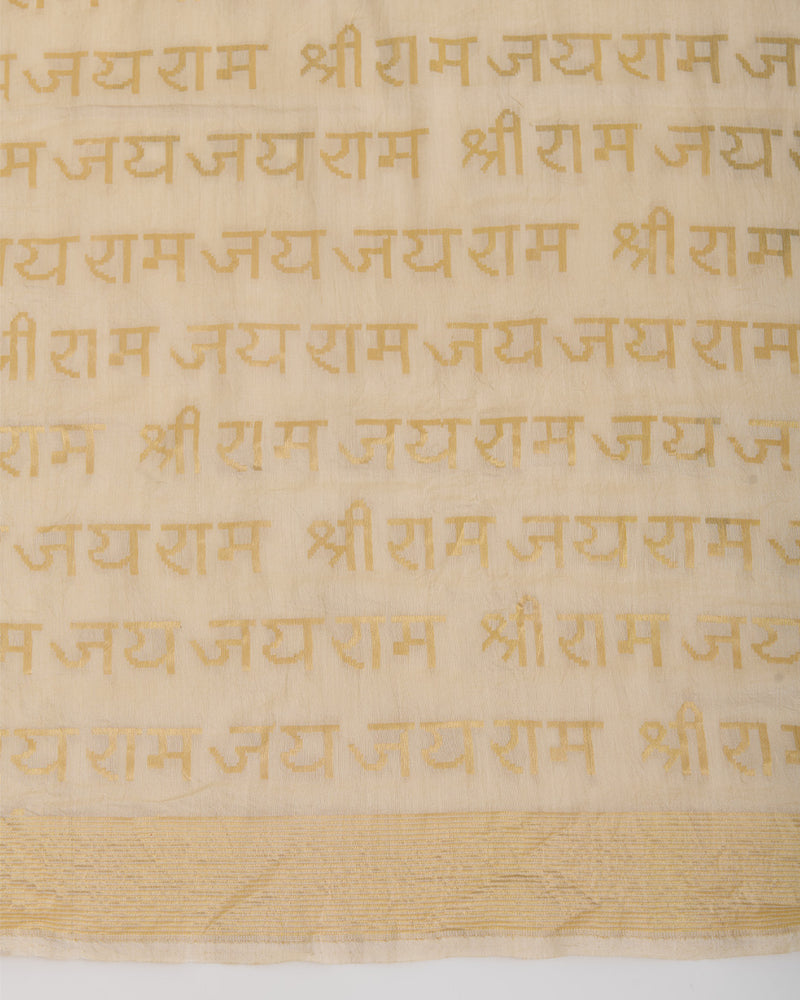 जय राम श्री राम जय राम
जय जय राम श्री राम जय
जय राम जय जय राम श्री राम
श्री राम जय राम जय जय राम
राम श्री राम जय राम जय जय
जय राम श्री राम जय राम
जय जय राम श्री राम जय
जय राम जय जय राम श्री राम